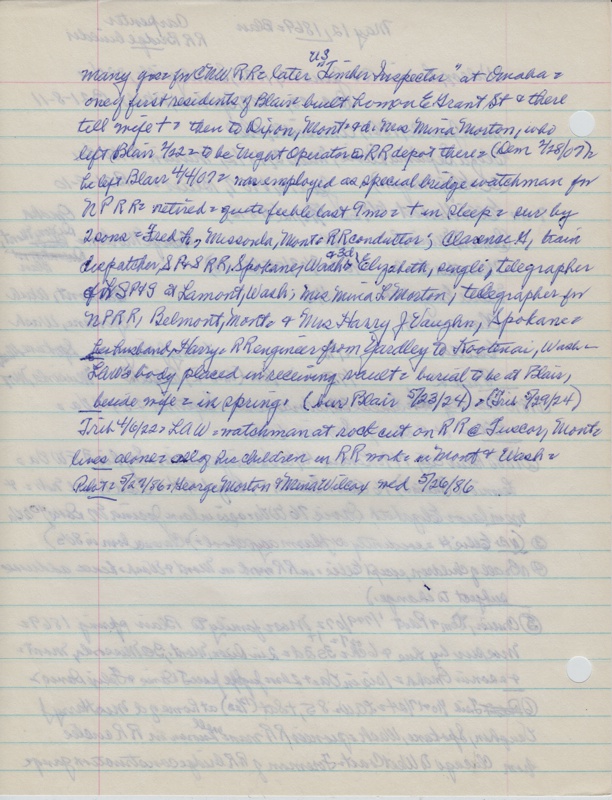 US
many yrs = for CNW RR = later "Timber Inspector" at Omaha =
one of first residents of Blair = built home on E Grant St & there
till wife + = then to Dixon, Mont = & d. Mrs Mina Morton, who
left Blair 2/22 = to be Night Operator @ RR depot there = (Dem 2/28/07)
he left Blair 4/4/07 = was employed as special bridge watchman for
NPRR = retired = quite feeble last 9 mo = + in sleep = sur by
2 sons = Fred L, Missoula, Mont = RR conductor; Clarence G, train
dispatcher, SP&S RR, Spokane, Wash = & 3d = Elizabeth, single, telegrapher
SP&S @ Lamont, Wash; Mrs Mina L Morton, telegrapher for
NPRR, Belmont, Mont = & Mrs Harry J Vaughn, Spokane =
her husband, Harry = RR engineer from Yardley to Kootenai, Wash =
LAW's body placed in receiving vault = burial to be at Blair,
beside wife = in spring. (bur Blair 5/23/24) = (Trib 5/29/24)
Trib 4/6/22 = LAW = watchman at rock cut on RR @ Tuscor, Mont =
lives alone = all of his children in RR work = in Mont & Wash =
Pilot = 5/27/86 = George Morton & Mina Wilcox wed 5/26/86